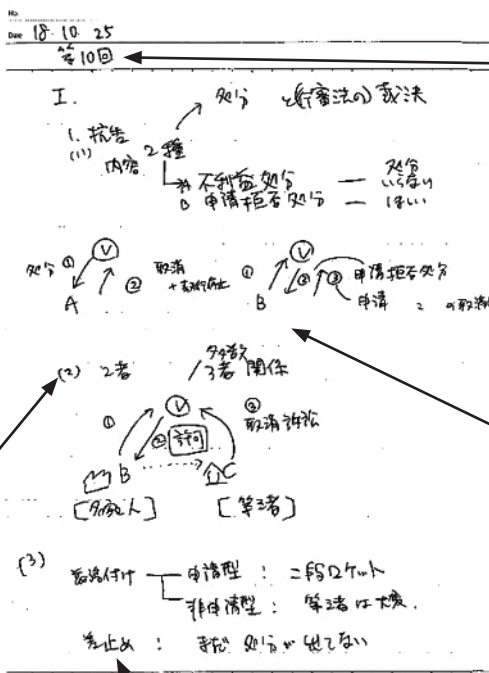 No.
Date 18・10・25
第10回
I.
処分 と(行審法の)裁決
1. 抗告
(1) 内容 2種
A 不利益処分 — 処分いらない
B 申請拒否処分 — ほしい
V V
処分 ① ② 取消 ① ② ③ 申請拒否処分
A B 申請 の取消
(2) 2者 / 多数 3者 関係
① V ③ 取消訴訟
② 許可
B C
[名宛人] [第3者]
(3)
義務付け 申請型 : 二段ロケット
非申請型 : 第3者は大変.
差止め : まだ処分が出てない